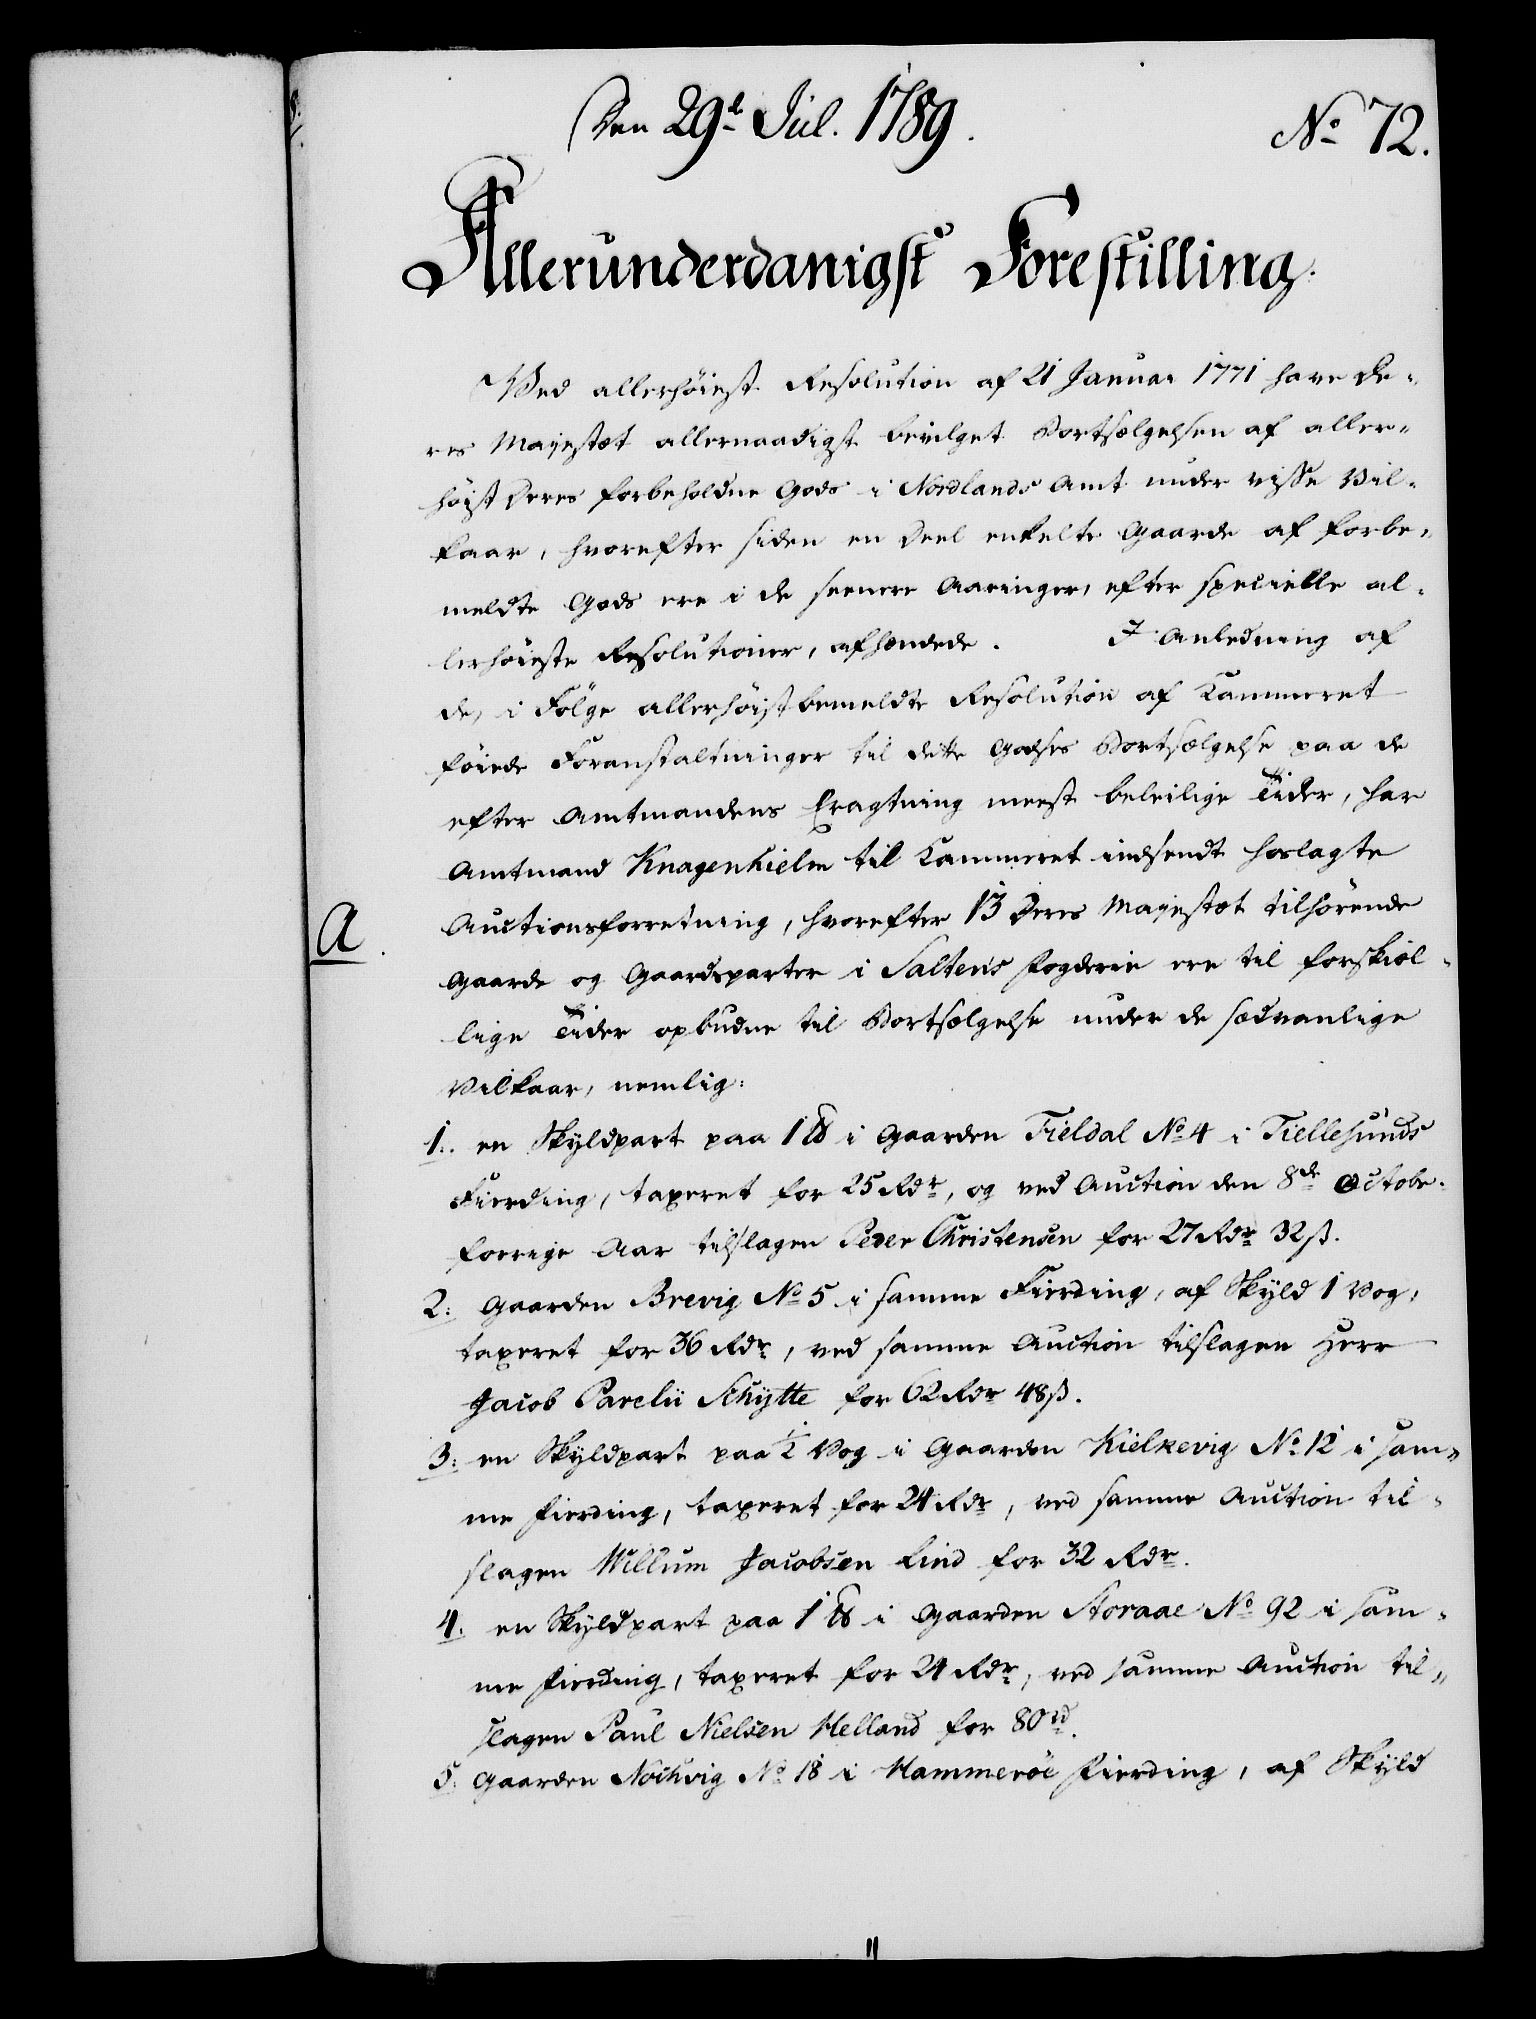 Den 29d Jul. 1789.
No 72.
Allerunderdanigst Forestilling.
Ved allerhöieste Resolution af 21 Januar 1771 have De-
res Majestæt allernaadigst bevilget Bortsælgelsen af aller-
höist Deres forbeholdne Gods i Nordlands Amt under visse Vil-
kaar, hvorefter siden en Deel enkelte Gaarde af forbe-
meldte Gods ere i de seenere Aaringer, efter specielle al-
lerhöieste Resolutioner, afhændede. I Anledning af
de, i Fölge allerhöistbemeldte Resolution af Kammeret
föiede Foranstaltninger til dette Godses Bortsælgelse paa de
efter Amtmandens Eragtning meest beleilige Tider, har
Amtmand Knagenhielm til Kammeret indsendt hoslagte
A.
Auctionsforretning, hvorefter 13 Deres Majestæt tilhörende
Gaarde og Gaardeparter i Saltens Fogderie ere til forskiel-
lige Tider opbudne til Bortsælgelse under de sædvanlige
Vilkaar, nemlig:
1. en Skyldpart paa 1 ℔ i Gaarden Fieldal No 4 i Tiellesunds
Fierding, taxeret for 25 Rdr, og ved Auction den 8de Octobr.
forrige Aar tilslagen Peder Christensen for 27 Rdr 32 ß.
2: Gaarden Brevig No 5 i samme Fierding, af Skyld 1 Vog,
taxeret for 36 Rdr, ved samme Auction tilslagen Herr
Jacob Parelii Schytte for 62 Rdr 48 ß.
3: en Skyldpart paa 1/2 Vog i Gaarden Kielkevig No 12 i sam-
me Fierding, taxeret for 24 Rdr, ved samme Auction til-
slagen Willum Jacobsen Lind for 32 Rdr.
4. en Skyldpart paa 1 ℔ i Gaarden Storaae No 92 i sam-
me Fierding, taxeret for 24 Rdr, ved samme Auction til-
slagen Paul Nielsen Helland for 80 rd.
5. Gaarden Nochvig No 18 i Hammeröe Fierding, af Skyld